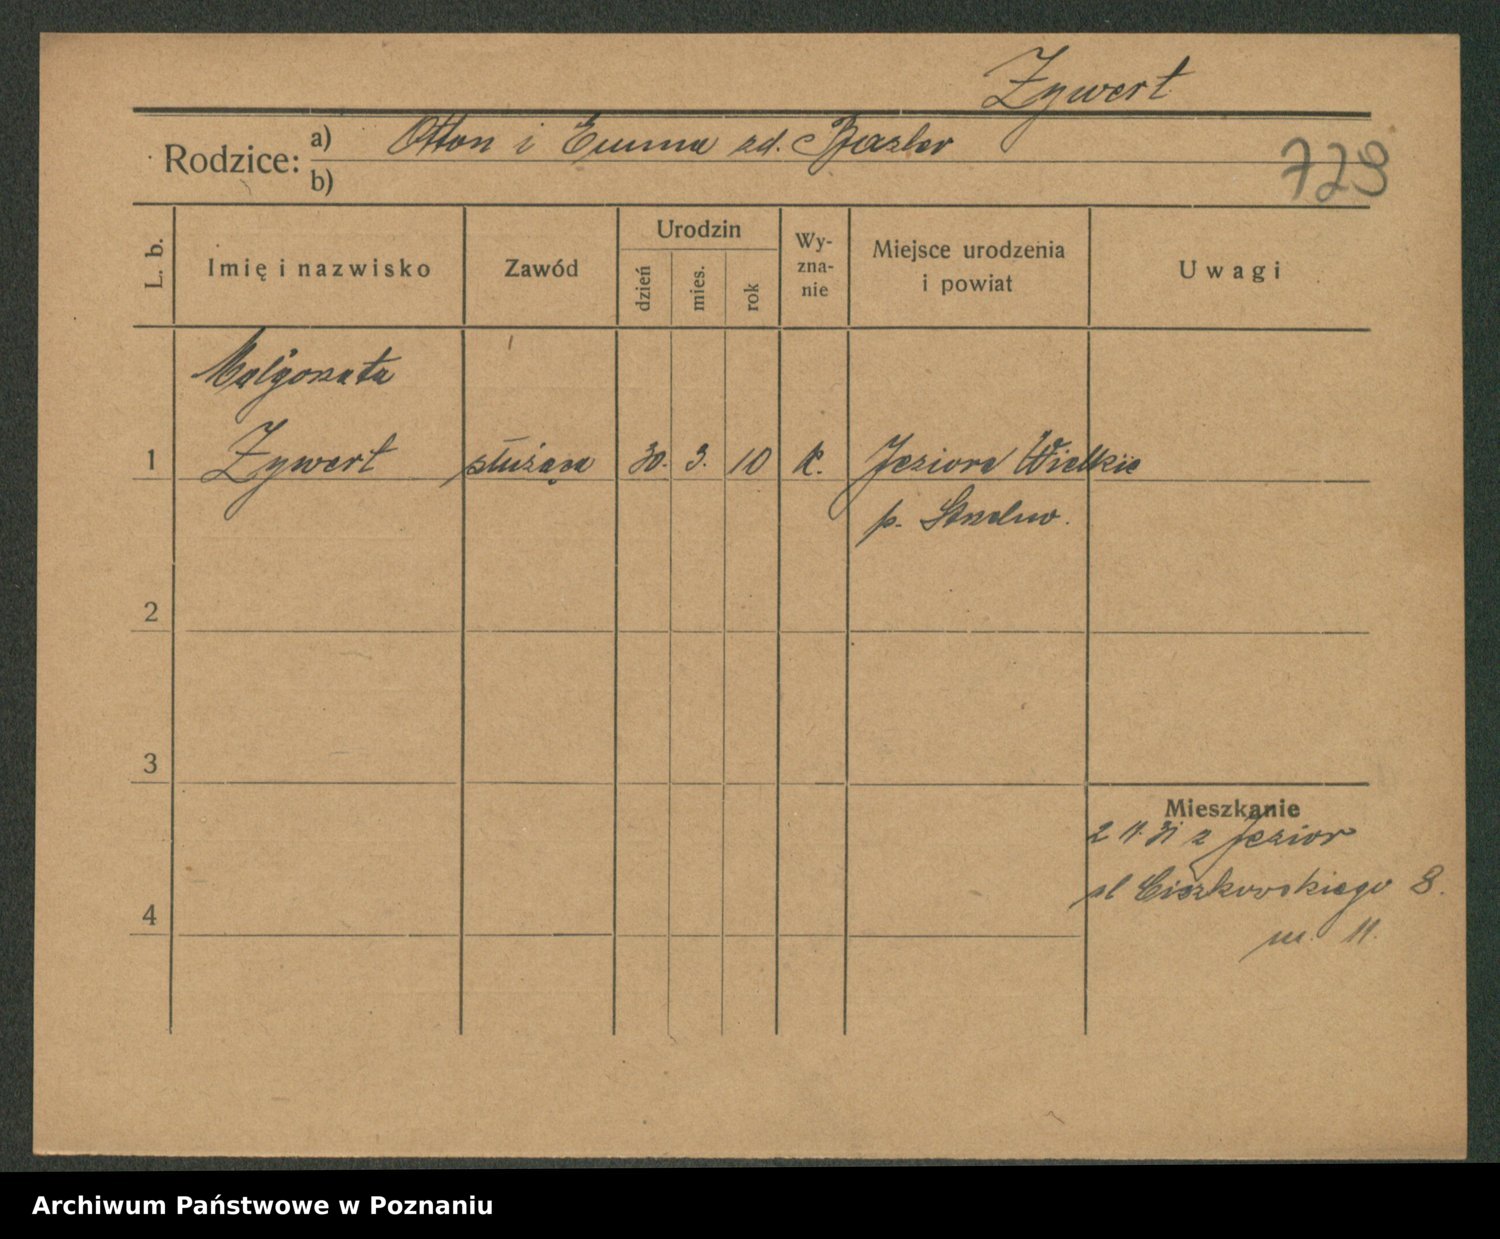 Zywert
Rodzice: a) Otton i Emma zd.
b)
729
L. b.
Imię i nazwisko
Zawód
Urodzin
dzień
mies.
rok
Wy-
zna-
nie
Miejsce urodzenia
i powiat
Uwagi
Małgorzata
1 Zywert służąca 30. 3. 10 k. Jeziora Wielkie
p. Strzelno.
2
3
4
Mieszkanie
2 11. 31 z Jezior
ul Cieszkowskiego 8.
m. 11.
Archiwum Państwowe w Poznaniu